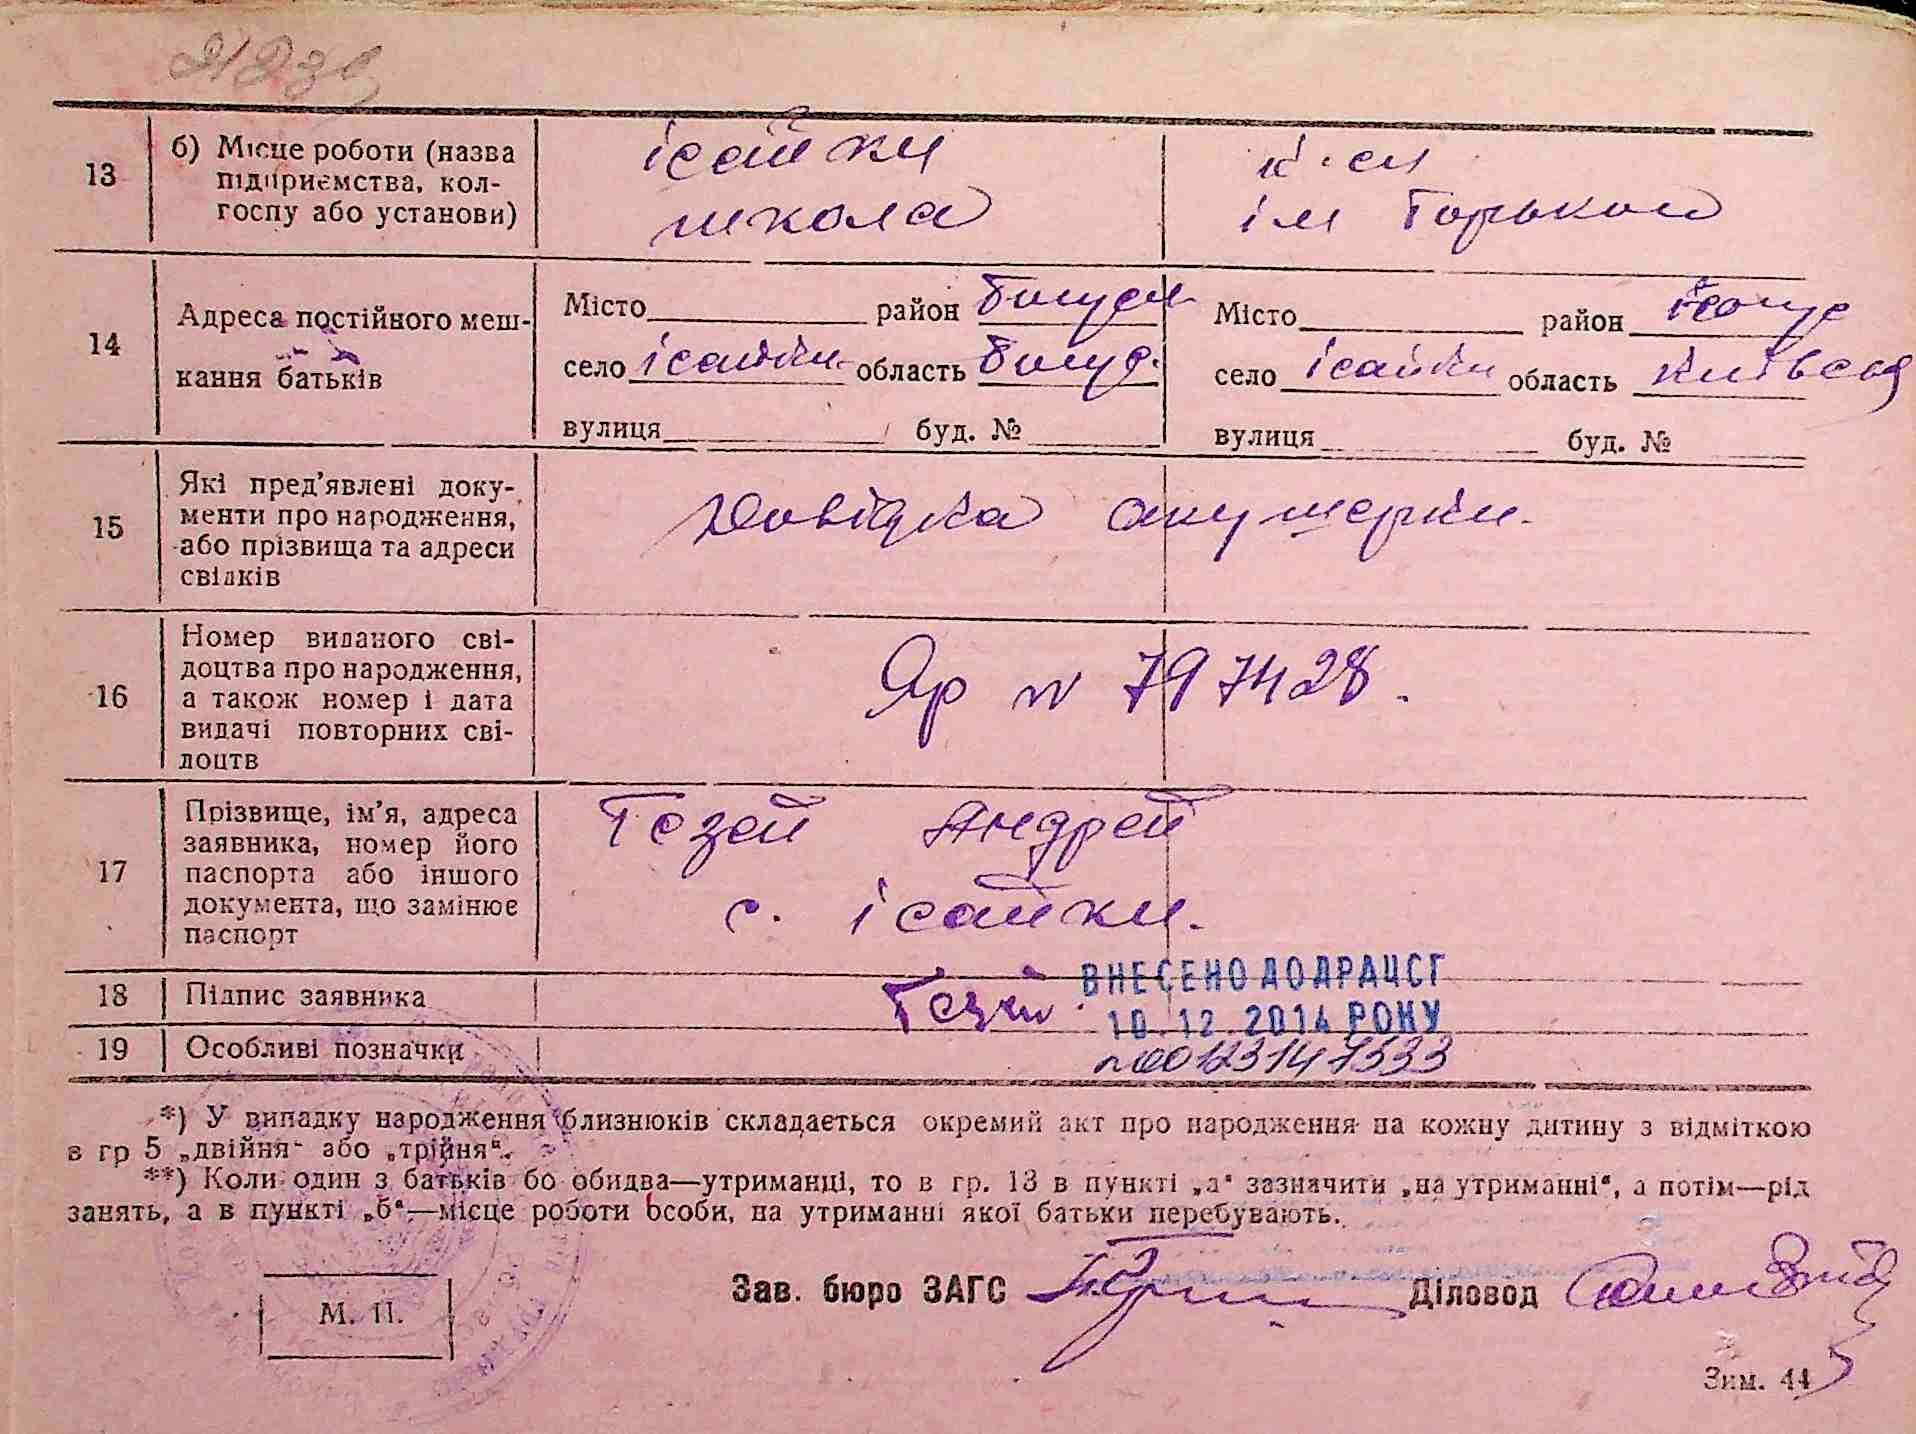 13
б) Місце роботи (назва
підприємства, кол-
госпу або установи)
ісайки
школа
к-сп
ім Горького
14
Адреса постійного меш-
кання батьків
Місто район Богусл
село ісайки область
вулиця буд. №
Місто район Богус
село ісайки область Київська
вулиця буд. №
15
Які пред’явлені доку-
менти про народження,
або прізвища та адреси
свідків
Довідка акушерки.
16
Номер виданого сві-
доцтва про народження,
а також номер і дата
видачі повторних сві-
доцтв
Яр № 797428.
17
Прізвище, ім’я, адреса
заявника, номер його
паспорта або іншого
документа, що замінює
паспорт
Гезей Андрей
с. ісайки.
18
Підпис заявника
Гезей
ВНЕСЕНО ДО ДРАЦСГ
10.12.2014 РОКУ
19
Особливі позначки
№00123147533
*) У випадку народження близнюків складається окремий акт про народження на кожну дитину з відміткою
в гр 5 „двійня“ або „трійня“.
**) Коли один з батьків бо обидва—утриманці, то в гр. 13 в пункті „а“ зазначити „на утриманні“, а потім—рід
занять, а в пункті „б“—місце роботи особи, на утриманні якої батьки перебувають.
Зав. бюро ЗАГС
Діловод
М. П.
Зим. 44